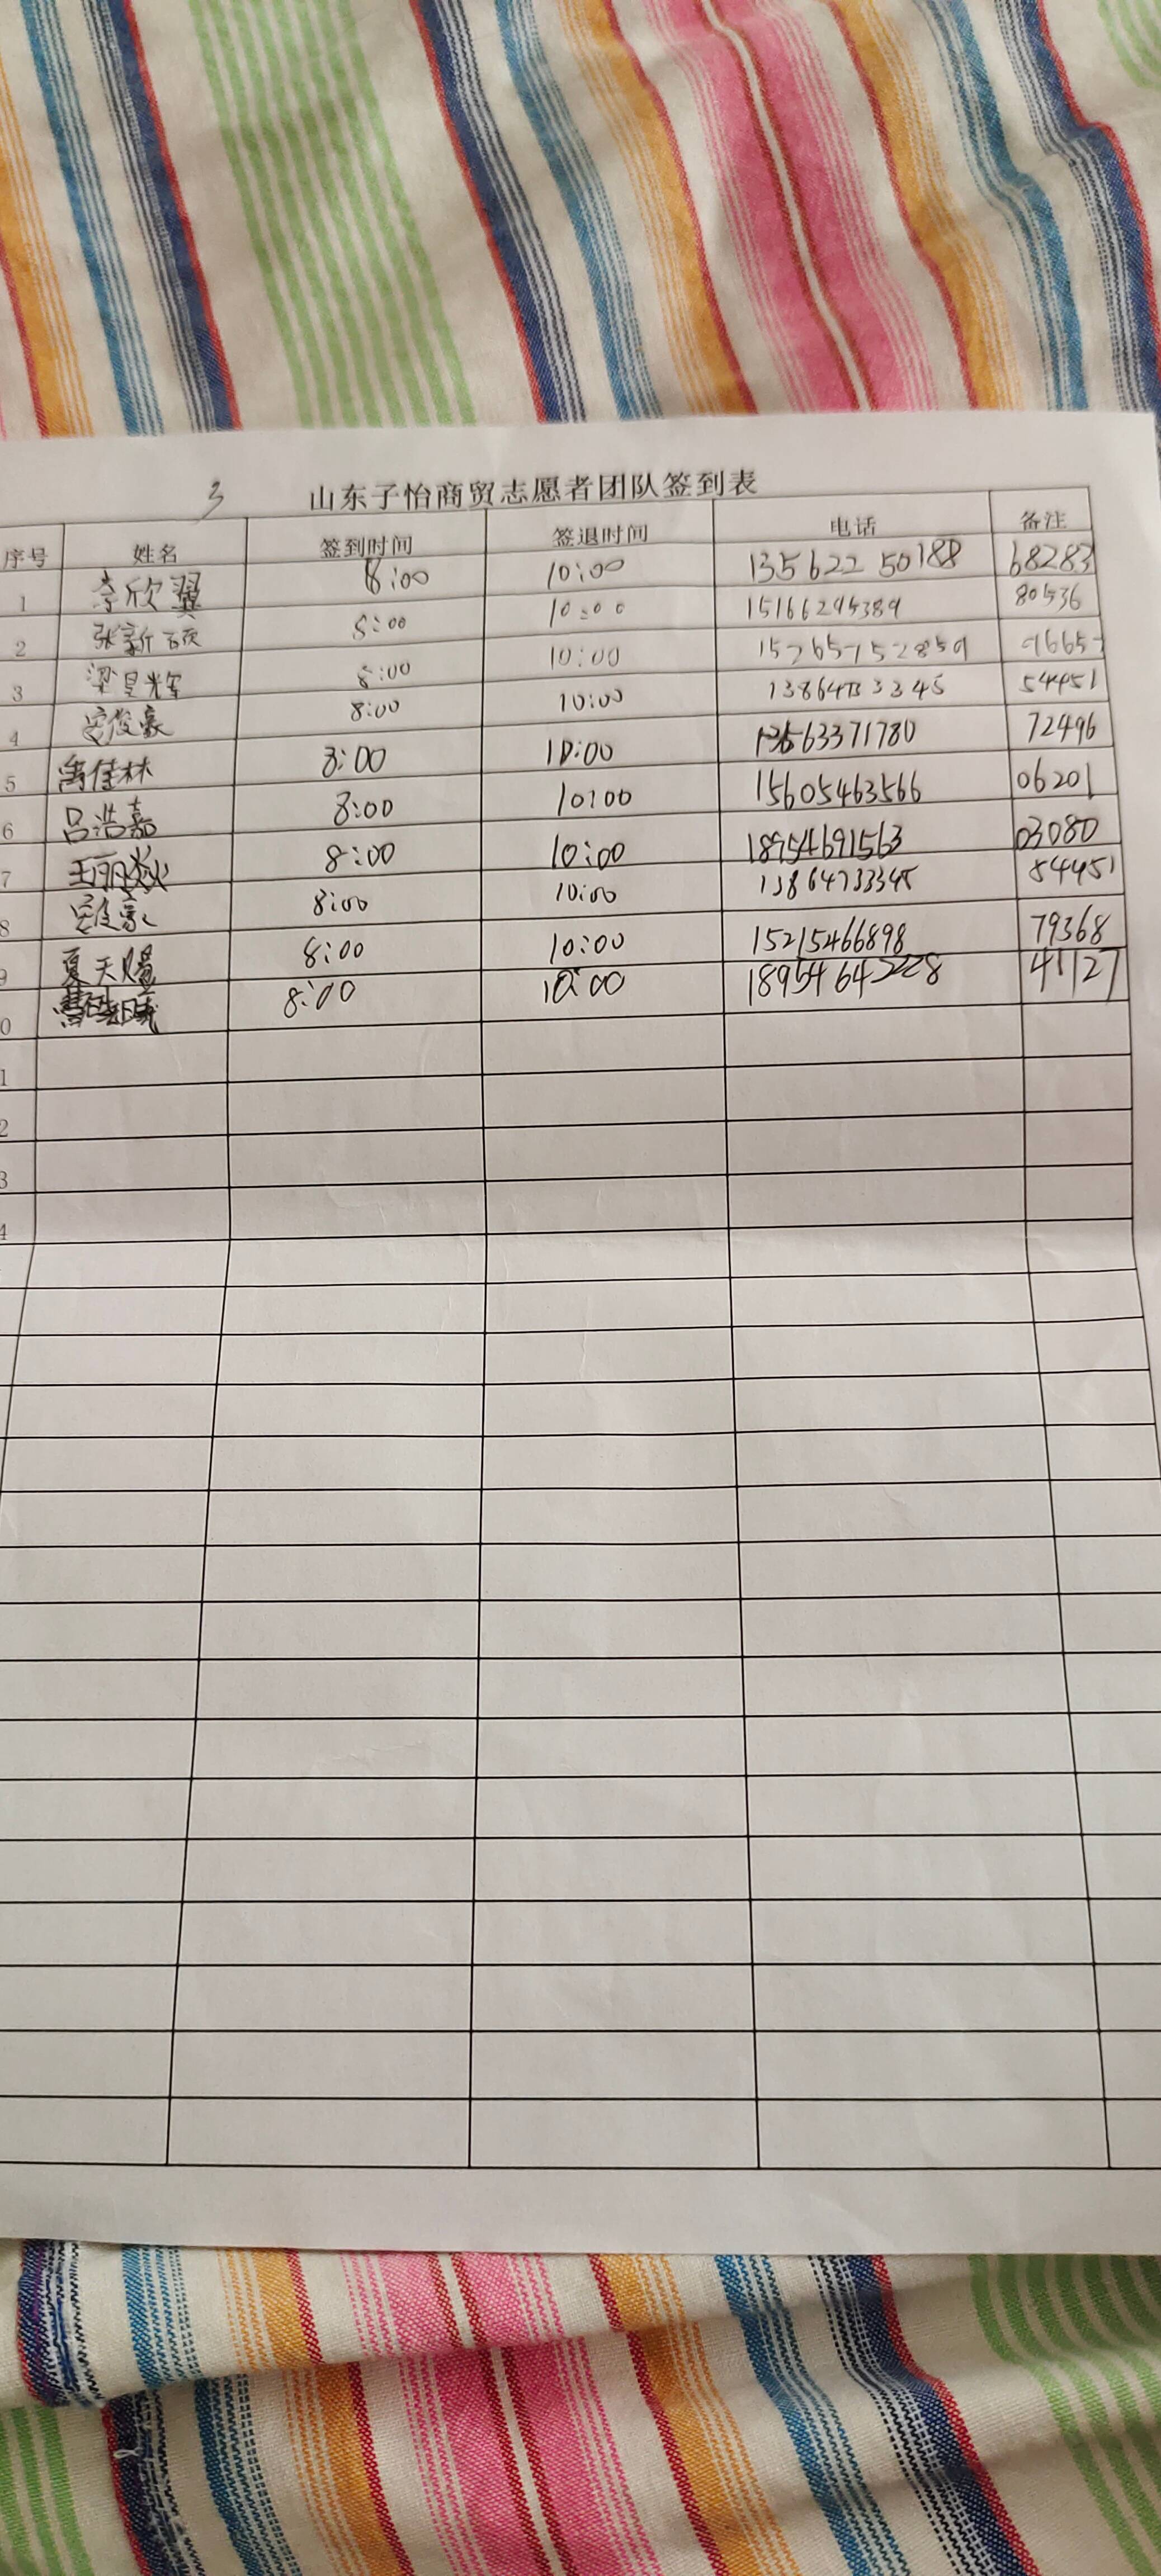 3
山东子怡商贸志愿者团队签到表
序号 姓名 签到时间 签退时间 电话 备注
1 李欣翼 8:00 10:00 135622 50188 68283
2 张新硕 8:00 10:00 15166295389 80536
3 梁昊辉 8:00 10:00
4 俊豪 8:00 10:00 54451
5 佳林 8:00 10:00 63371780 72496
6 吕浩嘉 8:00 10:00 15605463566 06201
7 8:00 10:00 18954691563 03080
8 8:00 10:00 54451
9 夏天赐 8:00 10:00 15215466898 79368
0 8:00 10:00 41127
1
2
3
4